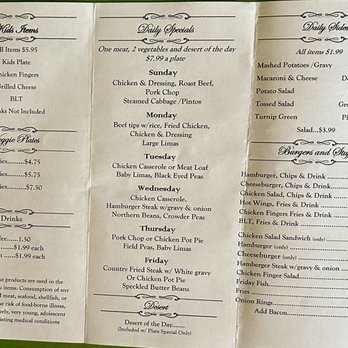 Kids Items
All Items $5.95
Kids Plate
Chicken Fingers
Grilled Cheese
BLT
Drinks Not Included
Veggie Plates
$4.75
$5.75
$7.50
Drinks
1.50
$1.99 each
$1.99 each
products are used in the
items. Consumption of any
meat, seafood, shellfish, or
risk of food-borne illness,
elderly, very young, adolescent
existing medical conditions
Daily Specials
One meat, 2 vegetables and desert of the day
$7.99 a plate
Sunday
Chicken & Dressing, Roast Beef,
Pork Chop
Steamed Cabbage/Pintos
Monday
Beef tips w/rice, Fried Chicken,
Chicken & Dressing
Large Limas
Tuesday
Chicken Casserole or Meat Loaf
Baby Limas, Black Eyed Peas
Wednesday
Chicken Casserole.
Hamburger Steak w/gravy & onion
Northern Beans, Crowder Peas
Thursday
Pork Chop or Chicken Pot Pie
Field Peas, Baby Limas
Friday
Country Fried Steak w/ White gravy
Or Chicken Pot Pie
Speckled Butter Beans
Desert
Desert of the Day.......
(Included w/ Plate Special Only)
Daily Sides
All items $1.99
Mashed Potatoes/Gravy
Macaroni & Cheese
Potato
Tossed Salad
Turnip Green
Salad...$3.99
Burgers and
Hamburger, Chips & Drink
Cheeseburger, Chips & Drink
Chicken Salad, Chips & Drink
Hot Wings, Fries & Drink
Chicken Fingers Fries & Drink
BLT, Fries & Drink
Chicken Salad Sandwich (only)
Hamburger (only)
Cheeseburger (only)
Hamberger Steak w/gravy & onion
Chicken Finger Salad
Friday Fish
Fries
Onion Rings
Add Bacon